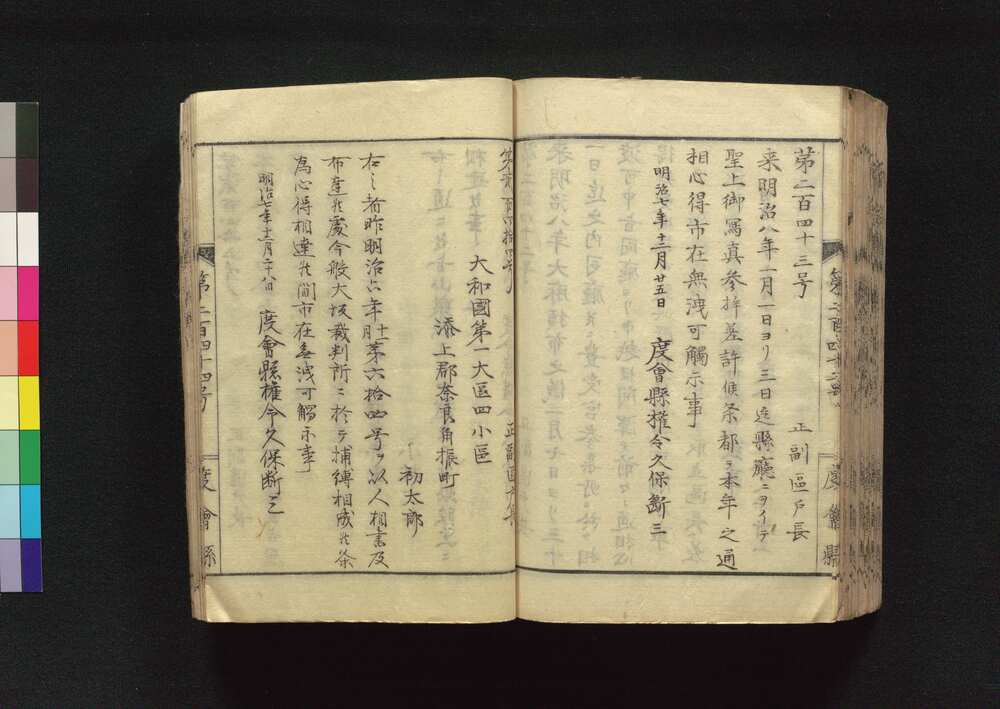 第二百四十三号
正副區戸長
来明治八年一月一日ヨリ三日迄縣廳ニヲイテ
聖上御寫真参拝差許候条都テ本年之通
相心得市在無洩可觸示事
明治七年十二月廿五日 度會縣権令久保断三
大和國第一大區四小區
添上郡奈良角振町
初太郎
右之者昨明治六年十二月第六拾四号ヲ以人相書及
布達候處今般大坂裁判所ニ於テ捕縛相成候条
為心得相達候間市在無洩可觸示事
明治七年十二月二十八日 度會縣権令久保断三
第二百四十四号
度會縣